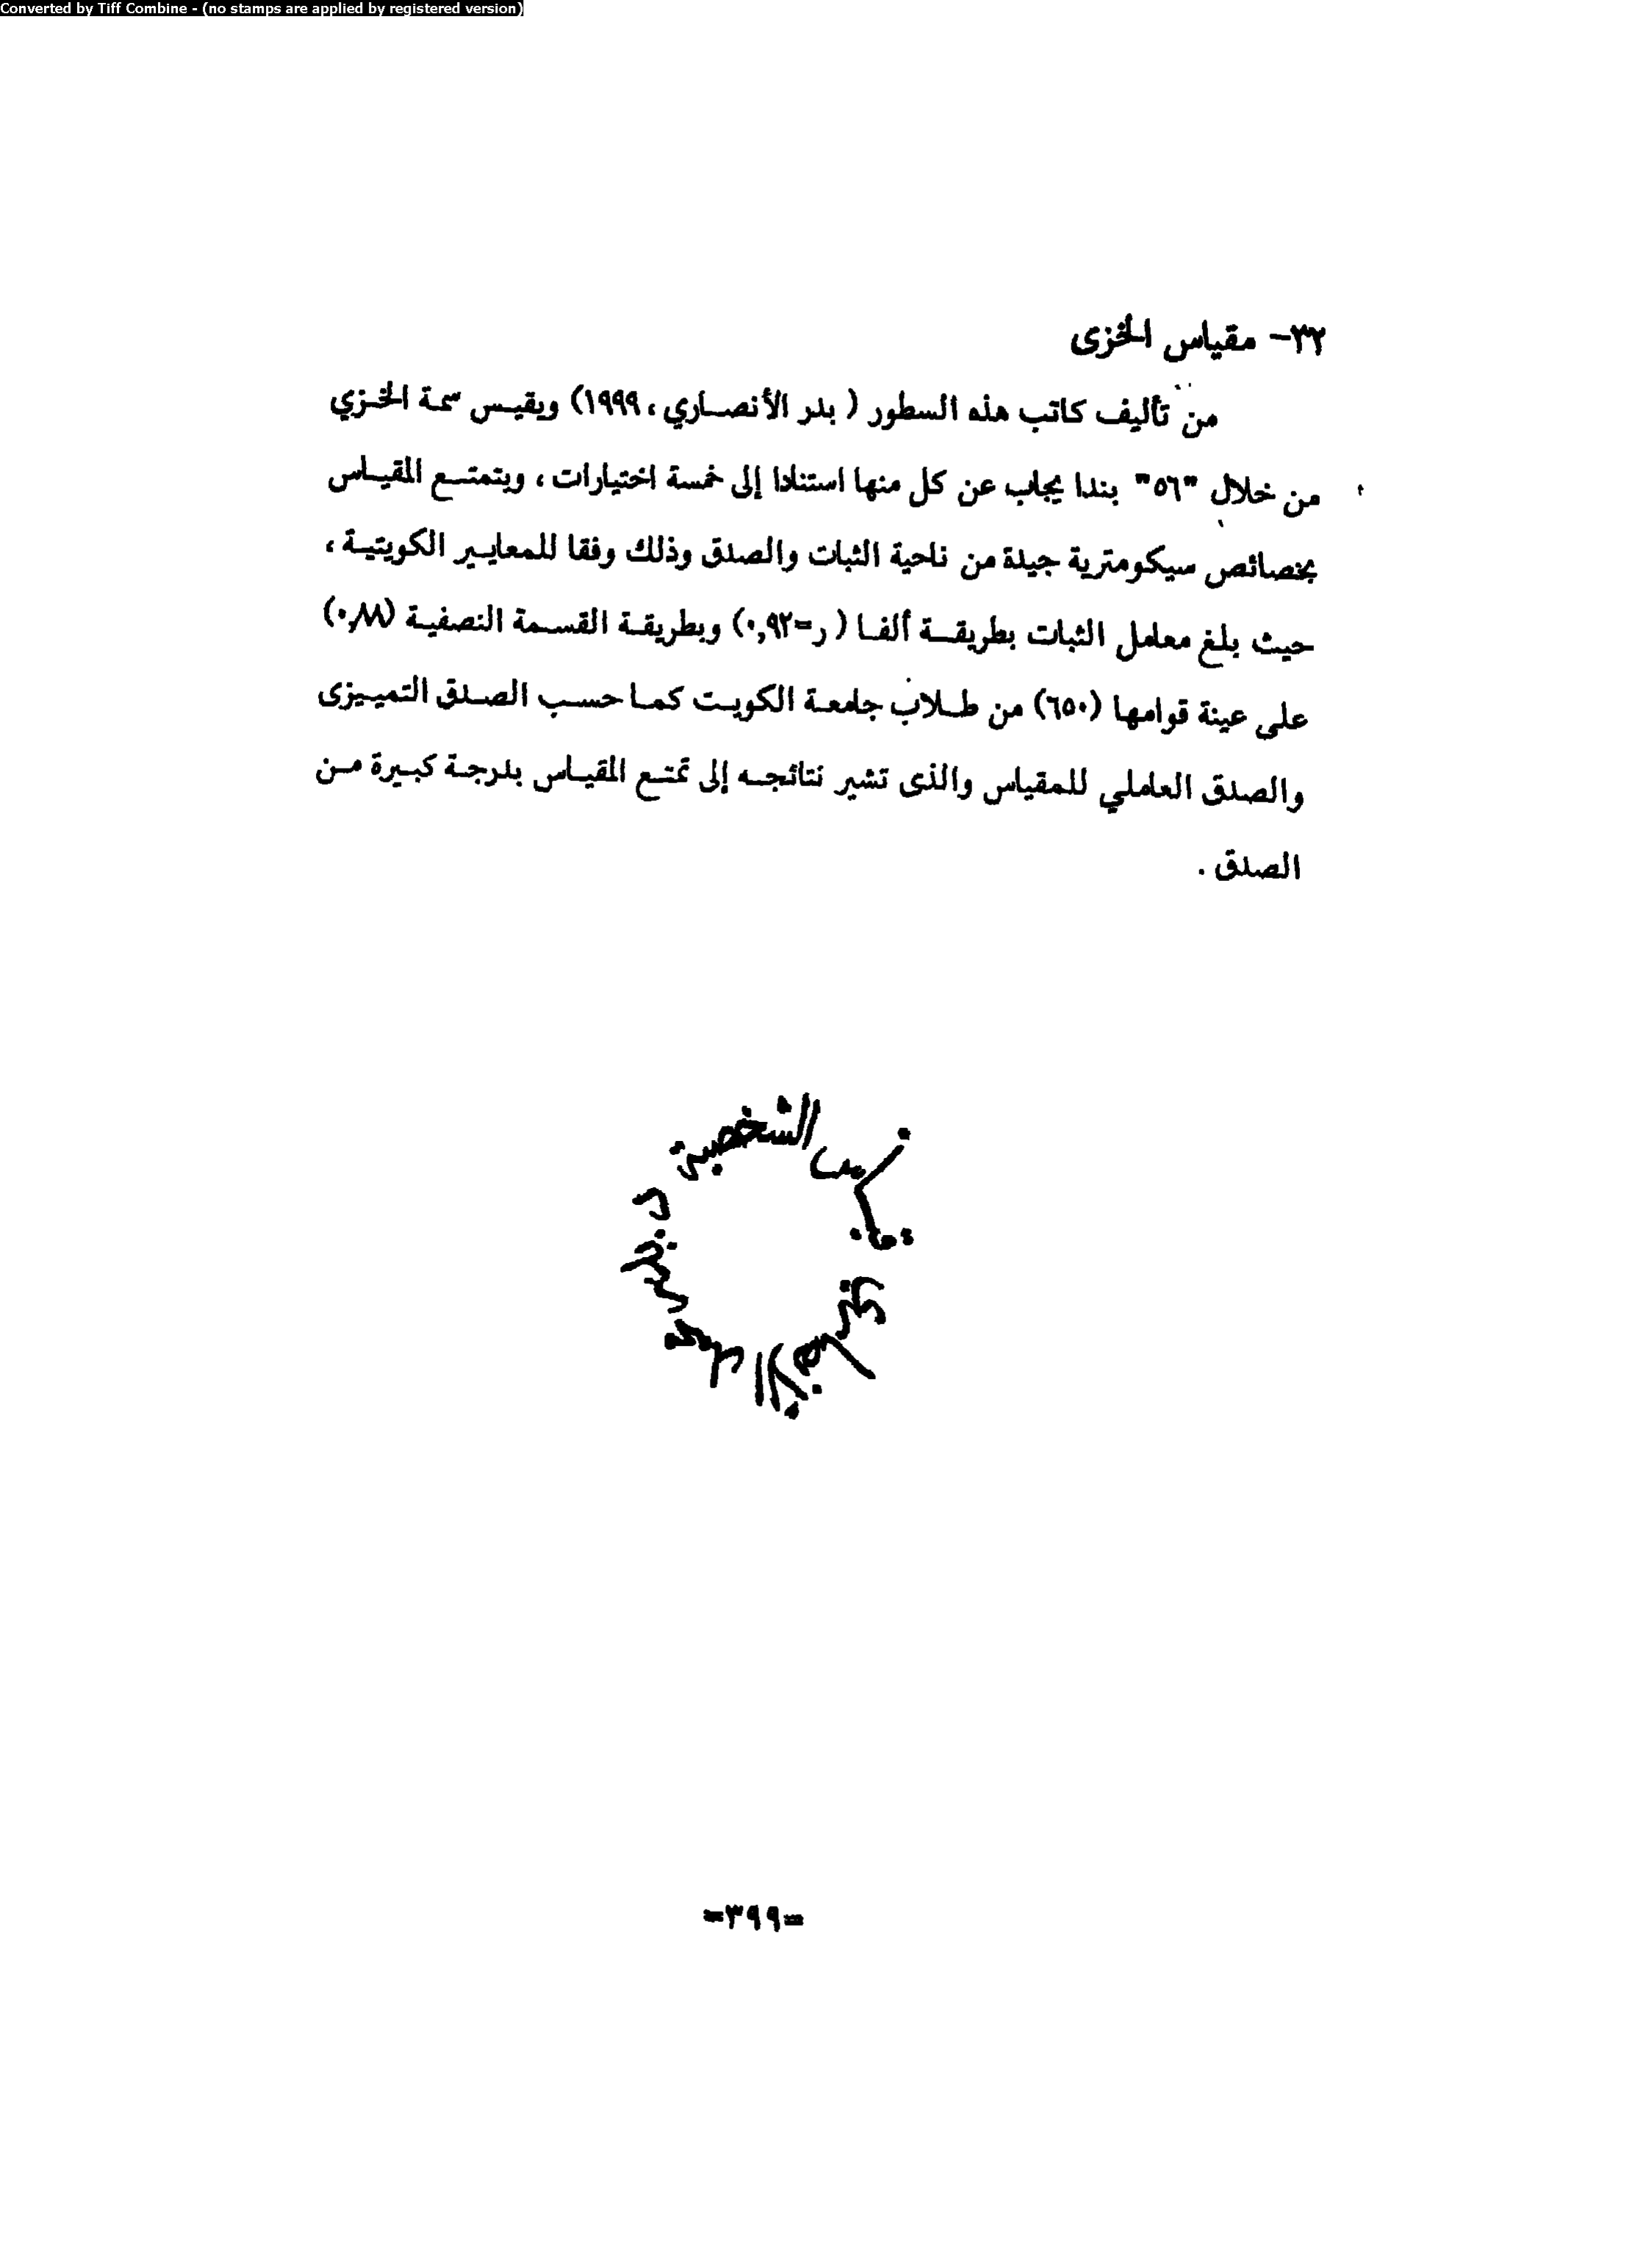 Converted by Tiff Combine - (no stamps are applied by registered version)
٣٢- مقياس الخزى
من تأليف كاتب هذه السطور ( بدر الأنصاري ، ١٩٩٩) ويقيس سمة الخزي
من خلال "٥٦" بندا يجاب عن كل منها استنادا إلى خمسة اختيارات ، ويتمتع المقياس
بخصائص سيكومترية جيدة من ناحية الثبات والصدق وذلك وفقا للمعايير الكويتية ،
حيث بلغ معامل الثبات بطريقة ألفا ( ر=٠,٩٢) وبطريقة القسمة النصفية (٠,٨٨)
على عينة قوامها (٦٥٠) من طلاب جامعة الكويت كما حسب الصدق التمييزى
والصدق العاملي للمقياس والذى تشير نتائجه إلى تمتع المقياس بدرجة كبيرة من
الصدق .
الشخصية
د.بدر محمد الأنصاري
=٣٩٩=